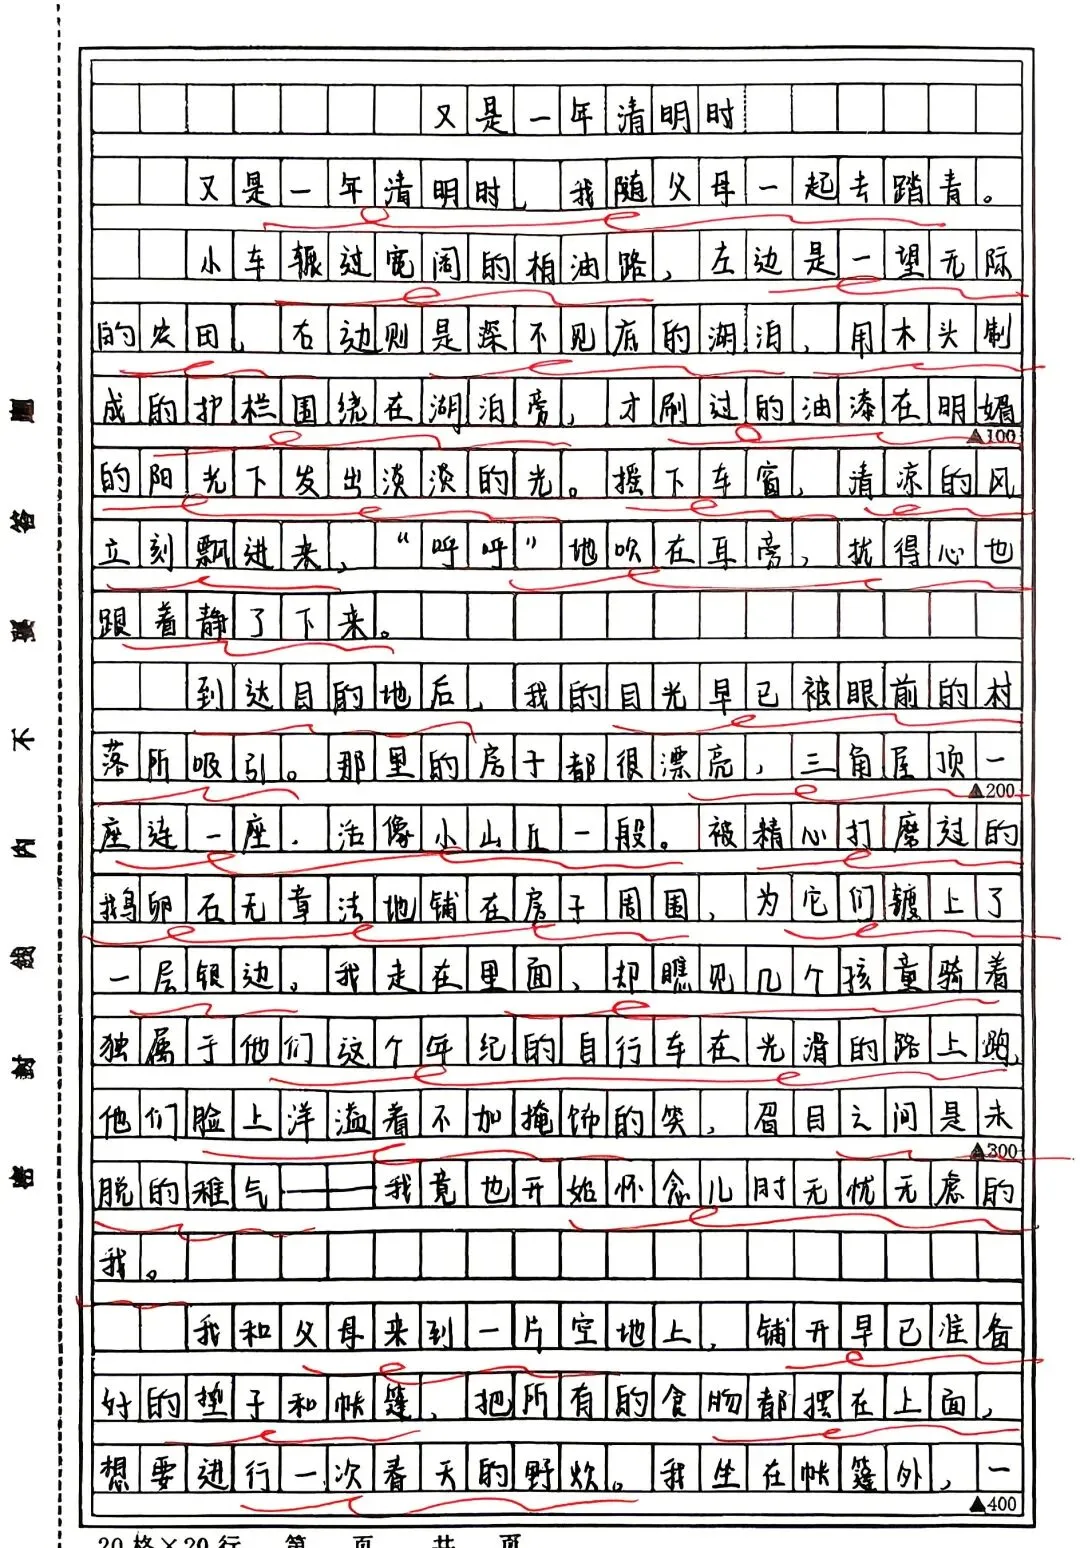 又是一年清明时
又是一年清明时，我随父母一起去踏青。
小车辗过宽阔的柏油路，左边是一望无际
的农田，右边则是深不见底的湖泊，用木头制
成的护栏围绕在湖泊旁，才刷过的油漆在明媚
▲100
的阳光下发出淡淡的光。摇下车窗，清凉的风
立刻飘进来，“呼呼”地吹在耳旁，扰得心也
跟着静了下来。
到达目的地后，我的目光早已被眼前的村
落所吸引。那里的房子都很漂亮，三角屋顶一
▲200
座连一座，活像小山丘一般。被精心打磨过的
鹅卵石无章法地铺在房子周围，为它们镀上了
一层银边。我走在里面，却瞧见几个孩童骑着
独属于他们这个年纪的自行车在光滑的路上跑，
他们脸上洋溢着不加掩饰的笑，眉目之间是未
▲300
脱的稚气——我竟也开始怀念儿时无忧无虑的
我。
我和父母来到一片空地上，铺开早已准备
好的垫子和帐篷，把所有的食物都摆在上面，
想要进行一次春天的野炊。我坐在帐篷外，一
▲400
20格×20行 第 页 共 页
密 封 线 内 不 要 答 题